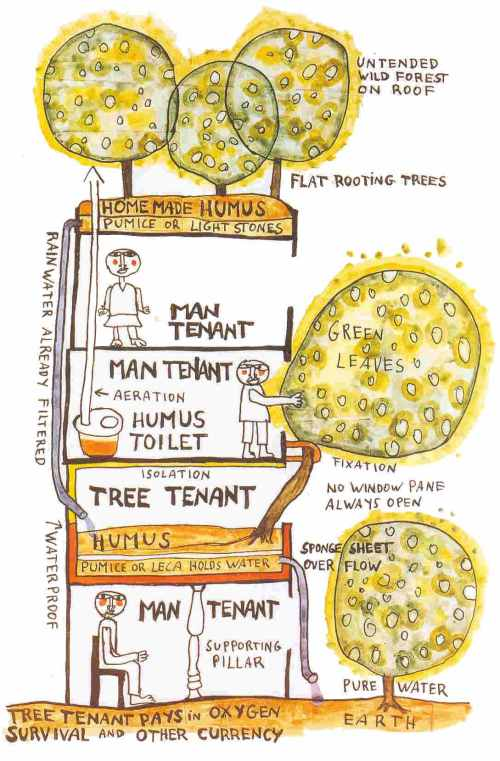 UNTENDED
WILD FOREST
ON ROOF
FLAT ROOTING TREES
HOME MADE HUMUS
PUMICE OR LIGHT STONES
RAINWATER ALREADY FILTERED
MAN
TENANT
MAN TENANT
← AERATION
HUMUS
TOILET
GREEN
LEAVES
FIXATION
NO WINDOW PANE
ALWAYS OPEN
ISOLATION
TREE TENANT
HUMUS
PUMICE OR LECA HOLDS WATER
SPONGE SHEET
OVER FLOW
↗WATERPROOF
MAN TENANT
SUPPORTING
PILLAR
PURE WATER
EARTH
TREE TENANT PAYS in OXYGEN
SURVIVAL AND OTHER CURRENCY